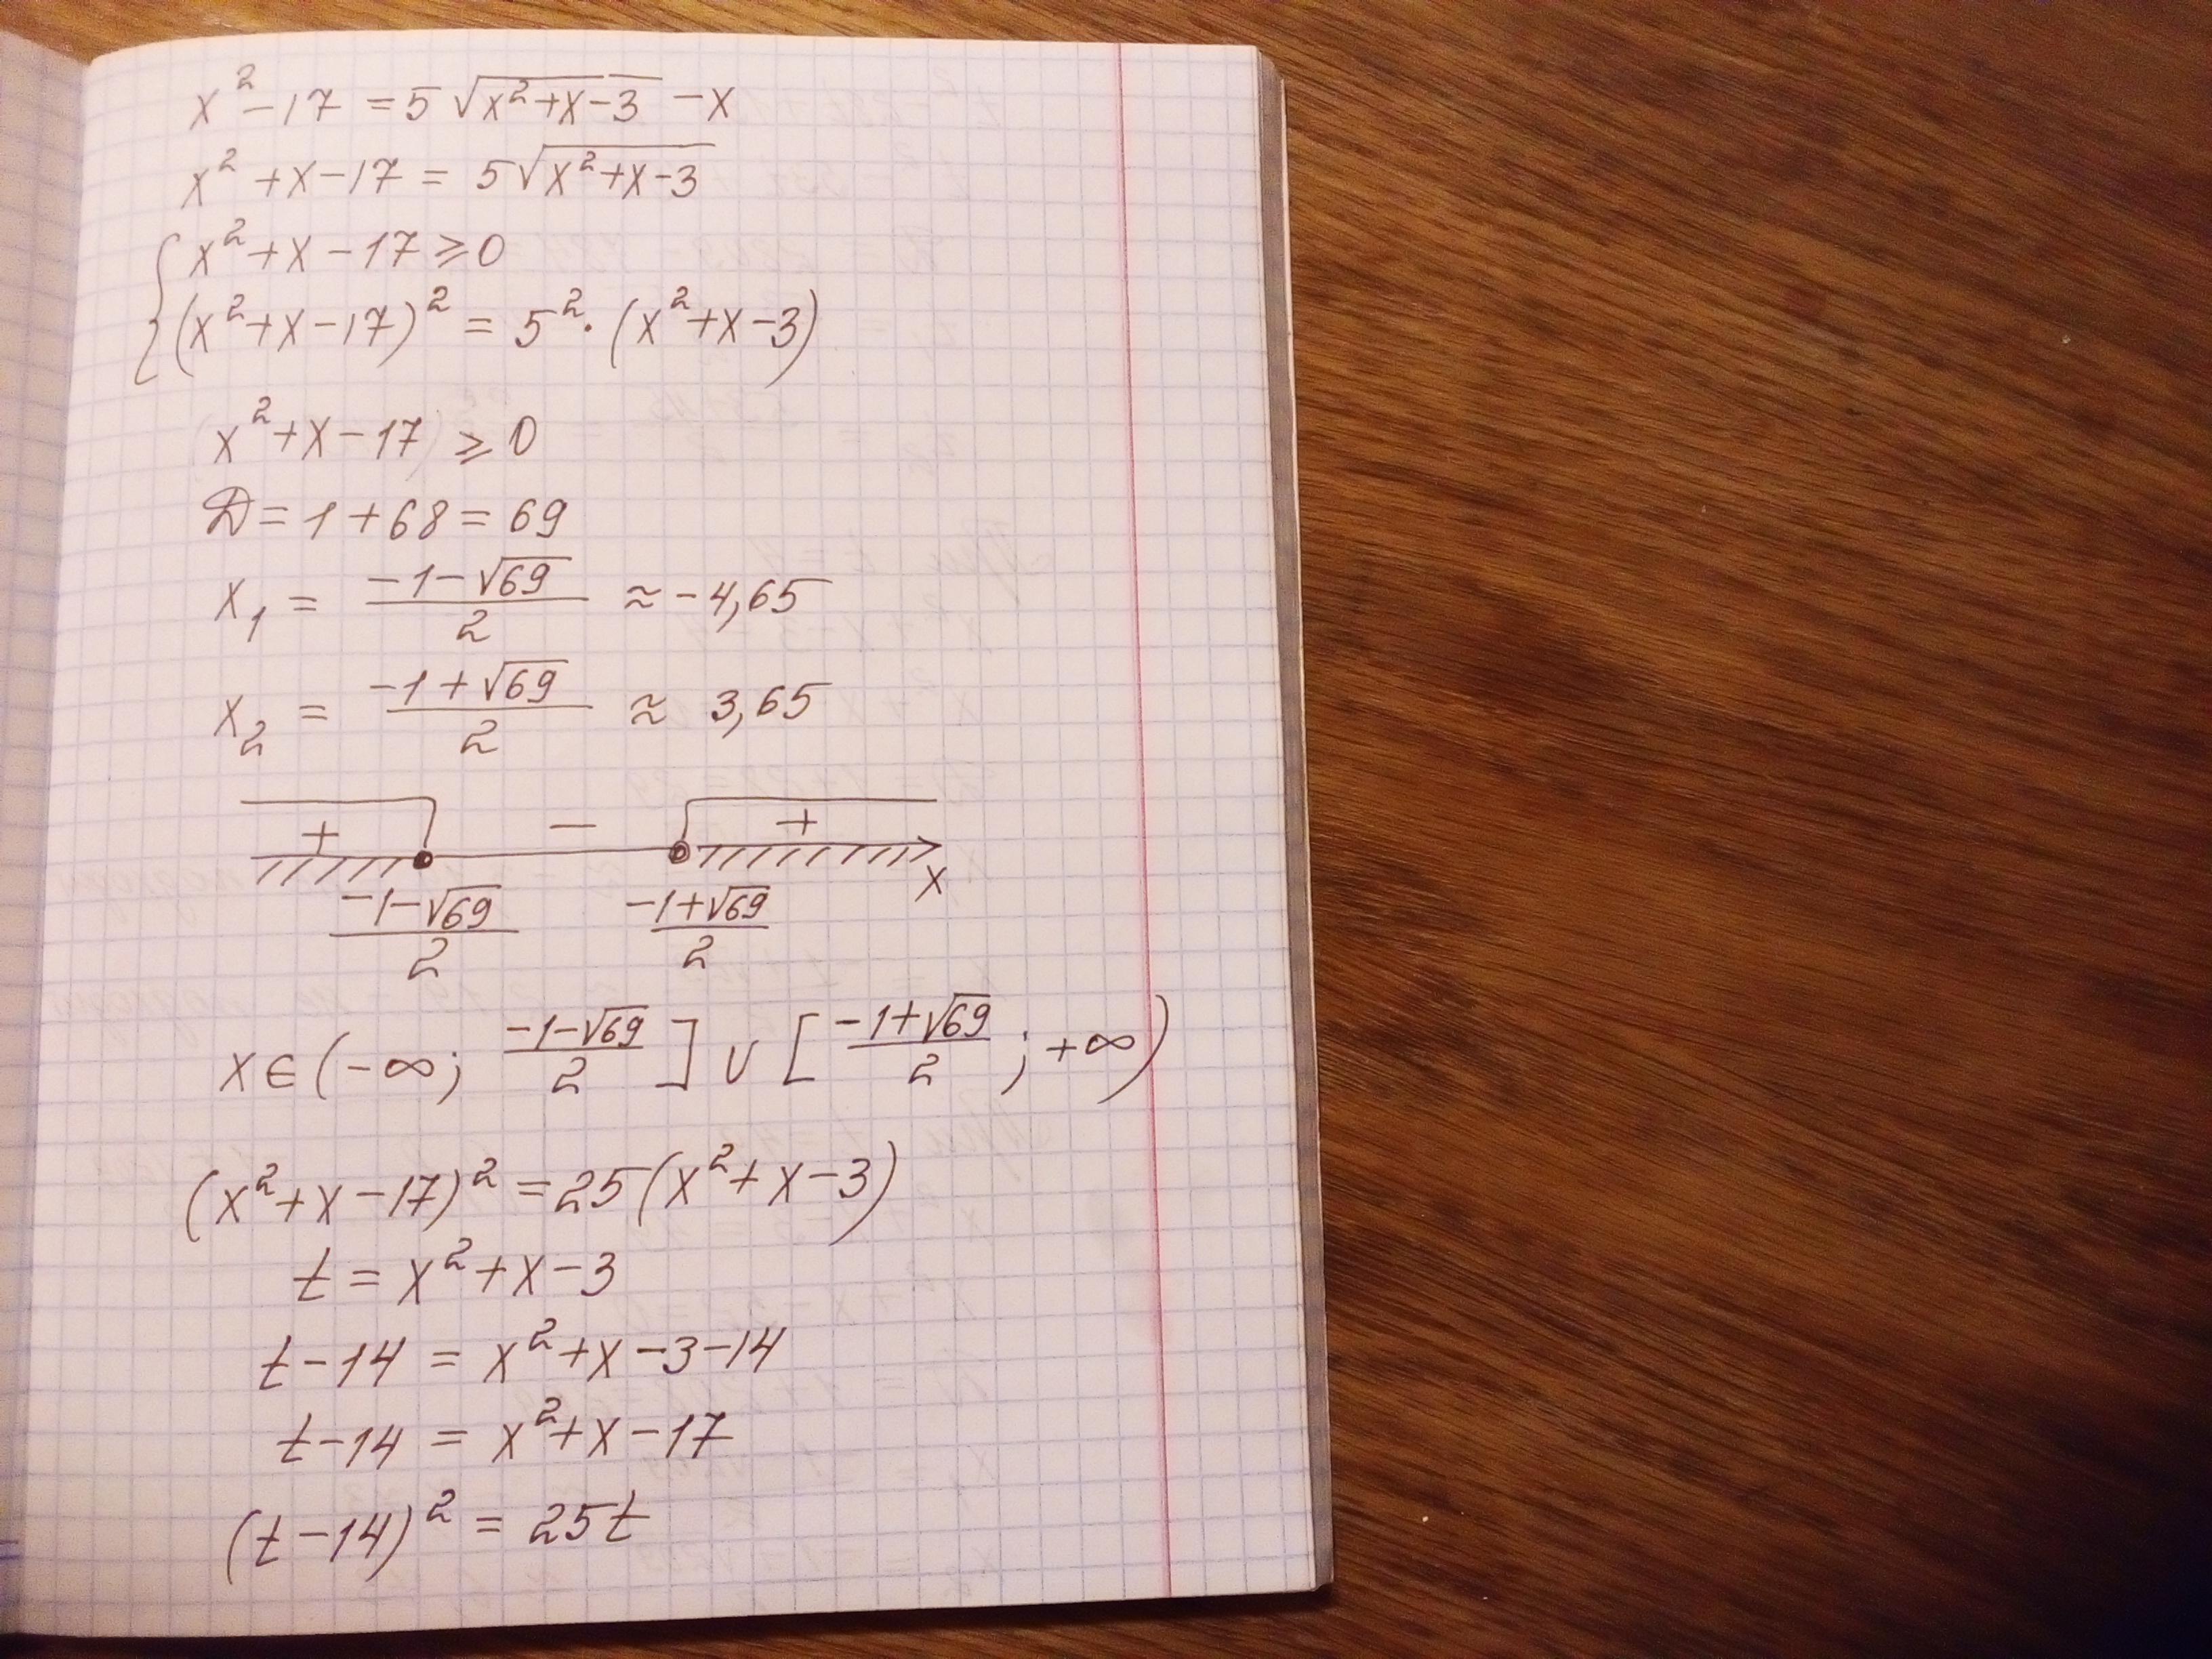 x² - 17 = 5√(x²+x-3) - x
x² + x - 17 = 5√(x²+x-3)
{ x² + x - 17 ⩾ 0
(x² + x - 17)² = 5² · (x² + x - 3)
x² + x - 17 ⩾ 0
D = 1 + 68 = 69
x₁ = (-1-√69)/2 ≈ -4,65
x₂ = (-1+√69)/2 ≈ 3,65
+ − +
x
(-1-√69)/2 (-1+√69)/2
x ∈ (-∞; (-1-√69)/2] ∪ [(-1+√69)/2; +∞)
(x² + x - 17)² = 25(x² + x - 3)
t = x² + x - 3
t - 14 = x² + x - 3 - 14
t - 14 = x² + x - 17
(t - 14)² = 25t